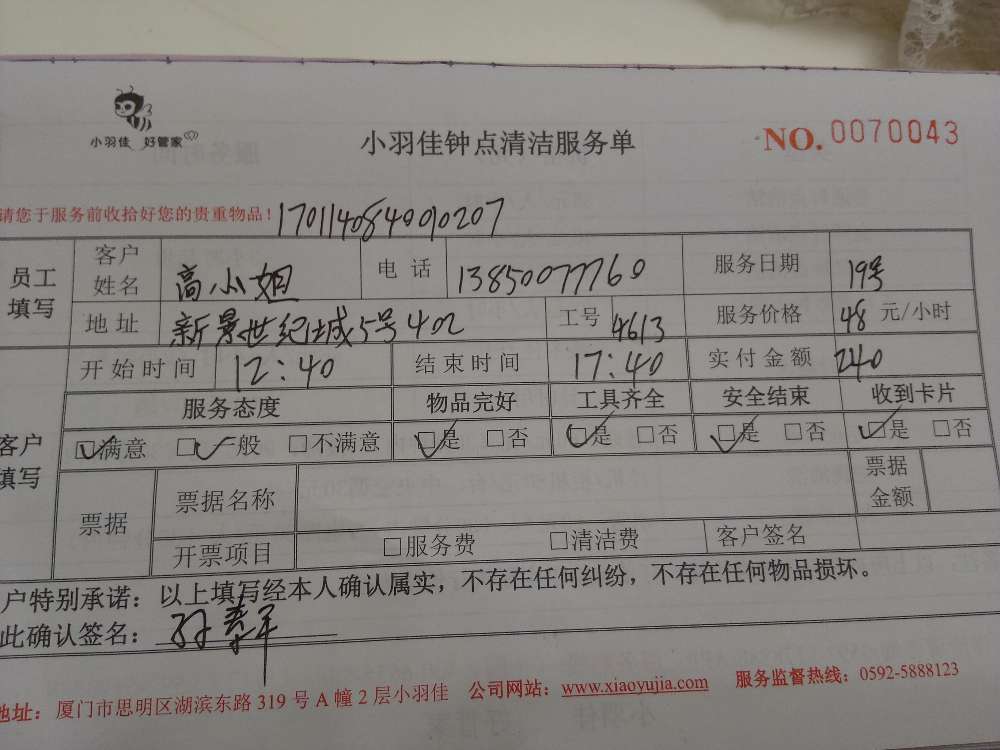 小羽佳 好管家
小羽佳钟点清洁服务单
NO. 0070043
请您于服务前收拾好您的贵重物品!
员工填写 客户姓名 高小姐 电话 13850077760 服务日期 19号
地址 新景世纪城5号402 工号 4613 服务价格 48 元/小时
客户填写 开始时间 12:40 结束时间 17:40 实付金额 240
服务态度 物品完好 工具齐全 安全结束 收到卡片
☑满意 ☑一般 □不满意 ☑是 □否 ☑是 □否 ☑是 □否 ☑是 □否
票据 票据名称 票据金额
开票项目 □服务费 □清洁费 客户签名
户特别承诺：以上填写经本人确认属实，不存在任何纠纷，不存在任何物品损坏。
此确认签名：
地址：厦门市思明区湖滨东路 319 号 A 幢 2 层小羽佳 公司网站：www.xiaoyujia.com 服务监督热线：0592-5888123